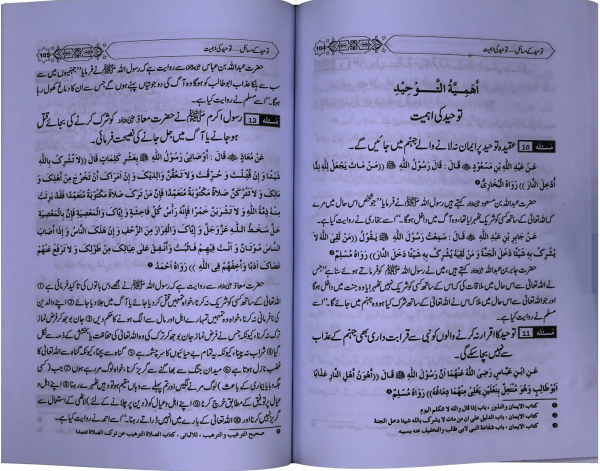 توحید کے مسائل ... توحید کی اہمیت
104
أَهَمِيَّةُ التَّوْحِيْدِ
توحید کی اہمیت
مسئله 10 عقیدہ توحید پر ایمان نہ لانے والے جہنم میں جائیں گے۔
عَنْ عَبْدِ اللَّهِ بْنِ مَسْعُوْدٍ ﷺ قَالَ : قَالَ رَسُوْلُ اللَّهِ ﷺ ((مَنْ مَاتَ يَجْعَلُ لِلَّهِ نِدًّا
أُدْخِلَ النَّارَ )) رَوَاهُ الْبُخَارِيُّ ❶
حضرت عبداللہ بن مسعود کہتے ہیں رسول اللہ ﷺ نے فرمایا ”جو شخص اس حال میں مرے
کہ اللہ تعالیٰ کے ساتھ کسی کو شریک ٹھہرایا تھا، وہ آگ میں داخل ہوگا۔“ اسے بخاری نے روایت کیا ہے۔
عَنْ جَابِرِ بْنِ عَبْدِ اللَّهِ قَالَ : سَمِعْتُ رَسُوْلَ اللَّهِ ﷺ يَقُوْلُ ((مَنْ لَقِيَ اللَّهَ لاَ
يُشْرِكُ بِهِ شَيْئًا دَخَلَ الْجَنَّةَ وَ مَنْ لَقِيَهُ يُشْرِكُ بِهِ شَيْئًا دَخَلَ النَّارَ)) رَوَاهُ مُسْلِمٌ ❷
حضرت جابر بن عبداللہ کہتے ہیں، میں نے رسول اللہ ﷺ کو فرماتے ہوئے سنا ہے ”جس نے
اللہ تعالیٰ سے اس حال میں ملاقات کی کہ اس کے ساتھ کسی کو شریک نہیں ٹھہرایا وہ جنت میں داخل ہوگا
اور جو اللہ تعالیٰ سے اس حال میں ملا کہ اس نے اللہ تعالیٰ کے ساتھ شرک کیا ہو وہ جہنم میں جائے گا۔“ اسے
مسلم نے روایت کیا ہے۔
مسئله 11 توحید کا اقرار نہ کرنے والوں کو نبی سے قرابت داری بھی جہنم کے عذاب
سے نہیں بچا سکے گی۔
عَنِ ابْنِ عَبَّاسٍ رَضِيَ اللَّهُ عَنْهُمَا أَنَّ رَسُوْلَ اللَّهِ ﷺ قَالَ ((أَهْوَنُ أَهْلِ النَّارِ عَذَابًا
أَبُوْ طَالِبٍ وَ هُوَ مُنْتَعِلٌ بِنَعْلَيْنِ يَغْلِيْ مِنْهُمَا دِمَاغُهُ)) رَوَاهُ مُسْلِمٌ ❸
❶ كتاب الايمان والنذور ، باب اذا قال والله لا اتكلم اليوم
❷ كتاب الايمان ، باب الدليل على ان من مات لا يشرك بالله شيئا دخل الجنة
❸ كتاب الايمان ، باب شفاعة النبي لابي طالب و التخفيف عنه بسببه
توحید کے مسائل ... توحید کی اہمیت
105
حضرت عبداللہ بن عباس سے روایت ہے کہ رسول اللہ ﷺ نے فرمایا ”جہنمیوں میں سے
سب سے ہلکا عذاب ابوطالب کو ہوگا وہ آگ کی دو جوتیاں پہنے ہوں گے جس سے ان کا دماغ کھول رہا
ہوگا۔“ اسے مسلم نے روایت کیا ہے۔
مسئله 12 رسول اکرم ﷺ نے حضرت معاذ کو شرک کرنے کی بجائے قتل
ہو جانے یا آگ میں جل جانے کی نصیحت فرمائی۔
عَنْ مُعَاذٍ قَالَ : أَوْصَانِيْ رَسُوْلُ اللَّهِ ﷺ بِعَشْرِ كَلِمَاتٍ قَالَ ((لاَ تُشْرِكْ بِاللَّهِ
شَيْئًا وَ إِنْ قُتِلْتَ وَ حُرِّقْتَ وَ لاَ تَعُقَّنَّ وَالِدَيْكَ وَ إِنْ أَمَرَاكَ أَنْ تَخْرُجَ مِنْ أَهْلِكَ وَ
مَالِكَ وَ لاَ تَتْرُكَنَّ صَلاَةً مَكْتُوْبَةً مُتَعَمِّدًا فَإِنَّ مَنْ تَرَكَ صَلاَةً مَكْتُوْبَةً مُتَعَمِّدًا فَقَدْ بَرِئَتْ
مِنْهُ ذِمَّةُ اللَّهِ وَ لاَ تَشْرَبَنَّ خَمْرًا فَإِنَّهُ رَأْسُ كُلِّ فَاحِشَةٍ وَ إِيَّاكَ وَ الْمَعْصِيَةَ فَإِنَّ بِالْمَعْصِيَةِ
حَلَّ سَخَطُ اللَّهِ عَزَّ وَجَلَّ وَ إِيَّاكَ وَ الْفِرَارَ مِنَ الزَّحْفِ وَ إِنْ هَلَكَ النَّاسُ وَ إِذَا أَصَابَ
النَّاسَ مُوْتَانٌ وَ أَنْتَ فِيْهِمْ فَاثْبُتْ وَ أَنْفِقْ عَلَى عِيَالِكَ مِنْ طَوْلِكَ وَ لاَ تَرْفَعْ عَنْهُمْ
عَصَاكَ أَدَبًا وَ أَخِفْهُمْ فِي اللَّهِ )) رَوَاهُ أَحْمَدُ ❶
حضرت معاذ سے روایت ہے رسول اللہ ﷺ نے مجھے دس باتوں کی تاکید فرمائی ہے ①
اللہ تعالیٰ کے ساتھ کسی کو شریک نہ کرنا خواہ تمہیں قتل کر دیا جائے یا آگ میں جلا دیا جائے ② اپنے والدین
کی نافرمانی نہ کرنا، خواہ وہ تمہیں تمہارے اہل اور مال سے الگ ہونے کا حکم دیں ③ جان بوجھ کر فرض نماز
ترک نہ کرنا کیونکہ جس نے فرض نماز جان بوجھ کر ترک کی وہ اللہ تعالیٰ کی حفاظت یا بخشش کے ذمہ سے نکل
گیا ④ شراب نہ پینا، کیونکہ یہ تمام بے حیائیوں کا سرچشمہ ہے ⑤ گناہ سے بچنا، کیونکہ گناہ سے اللہ تعالیٰ کا
غضب نازل ہوتا ہے ⑥ میدان جنگ سے بھاگنے سے گریز کرنا، خواہ لوگ مر رہے ہوں ⑦ جب (کسی
جگہ وبا یا بیماری کے باعث) لوگ مرنے لگیں اور تم پہلے سے وہاں مقیم ہو تو وہیں ٹھہرے رہنا ⑧ اپنے اہل و
عیال پر اپنی توفیق کے مطابق خرچ کرنا ⑨ اپنے اہل و عیال کو (دین پر چلانے کے لئے) لاٹھی کے استعمال سے
گریز نہیں کرنا اور ⑩ اللہ تعالیٰ کے بارے میں انہیں ڈراتے رہنا۔“ اسے احمد نے روایت کیا ہے۔
❶ صحيح الترغيب و الترهيب ، للالباني ، كتاب الصلاة الترهيب عن ترك الصلاة تعمدا